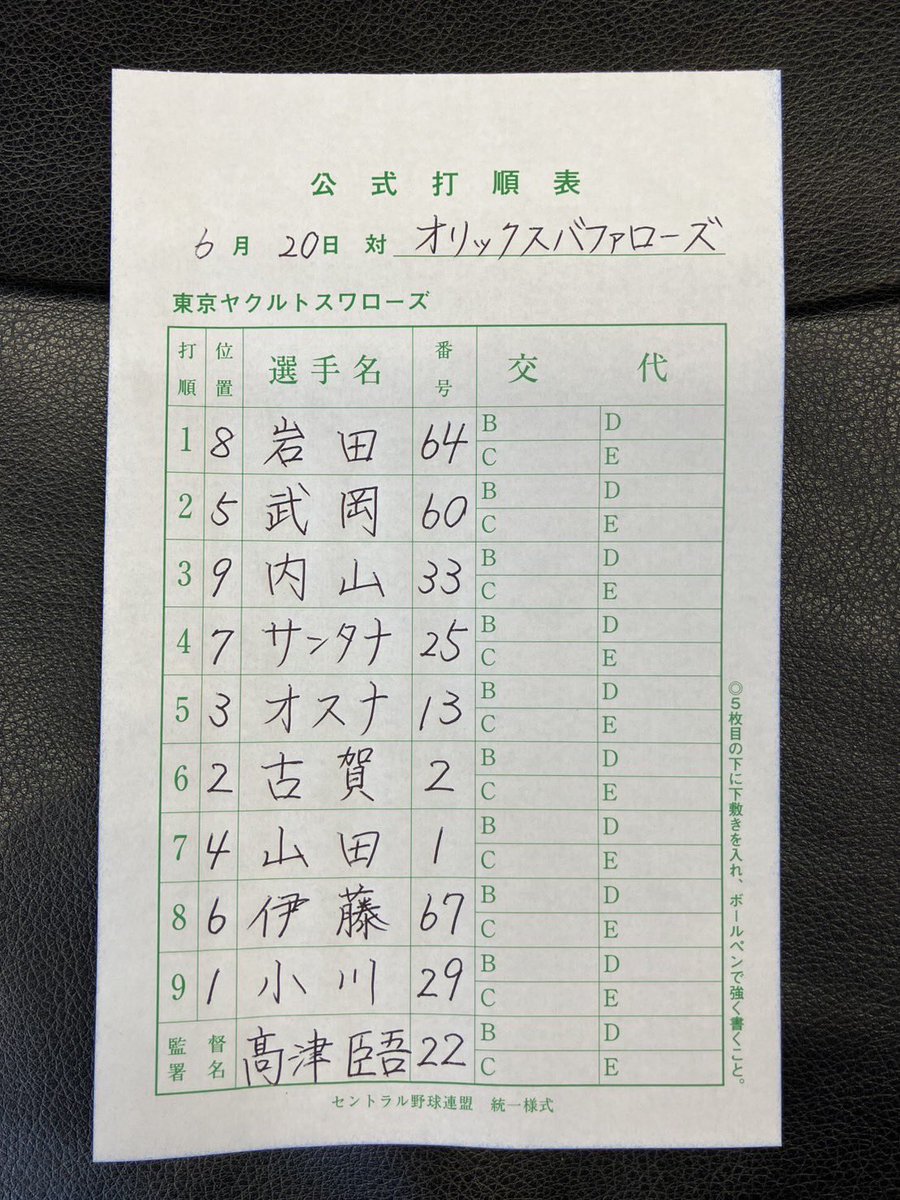 公式打順表
6月20日 対 オリックスバファローズ
東京ヤクルトスワローズ
打順 位置 選手名 番号 交代
1 8 岩田 64 B D C E
2 5 武岡 60 B D C E
3 9 内山 33 B D C E
4 7 サンタナ 25 B D C E
5 3 オスナ 13 B D C E
6 2 古賀 2 B D C E
7 4 山田 1 B D C E
8 6 伊藤 67 B D C E
9 1 小川 29 B D C E
監督署名 髙津臣吾 22 B D C E
セントラル野球連盟 統一様式
◎5枚目の下に下敷きを入れ、ボールペンで強く書くこと。